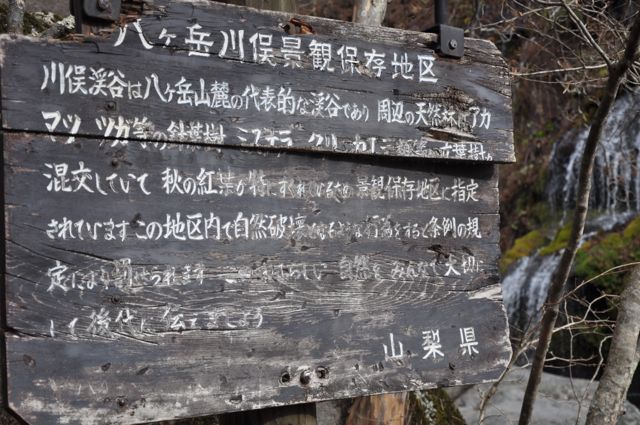 八ヶ岳川俣景観保存地区
川俣渓谷は八ヶ岳山麓の代表的な渓谷であり 周辺の天然林はアカ
マツ ツガ等の針葉樹 ミズナラ クリ カエデ
混交していて 秋の紅葉が特にすぐれているため 景観保存地区に指定
されています この地区内で自然破壊となるような行為をすると 条例の規
定により罰せられます 自然を みんなで 大切に
して 後代に伝えましょう
山梨県